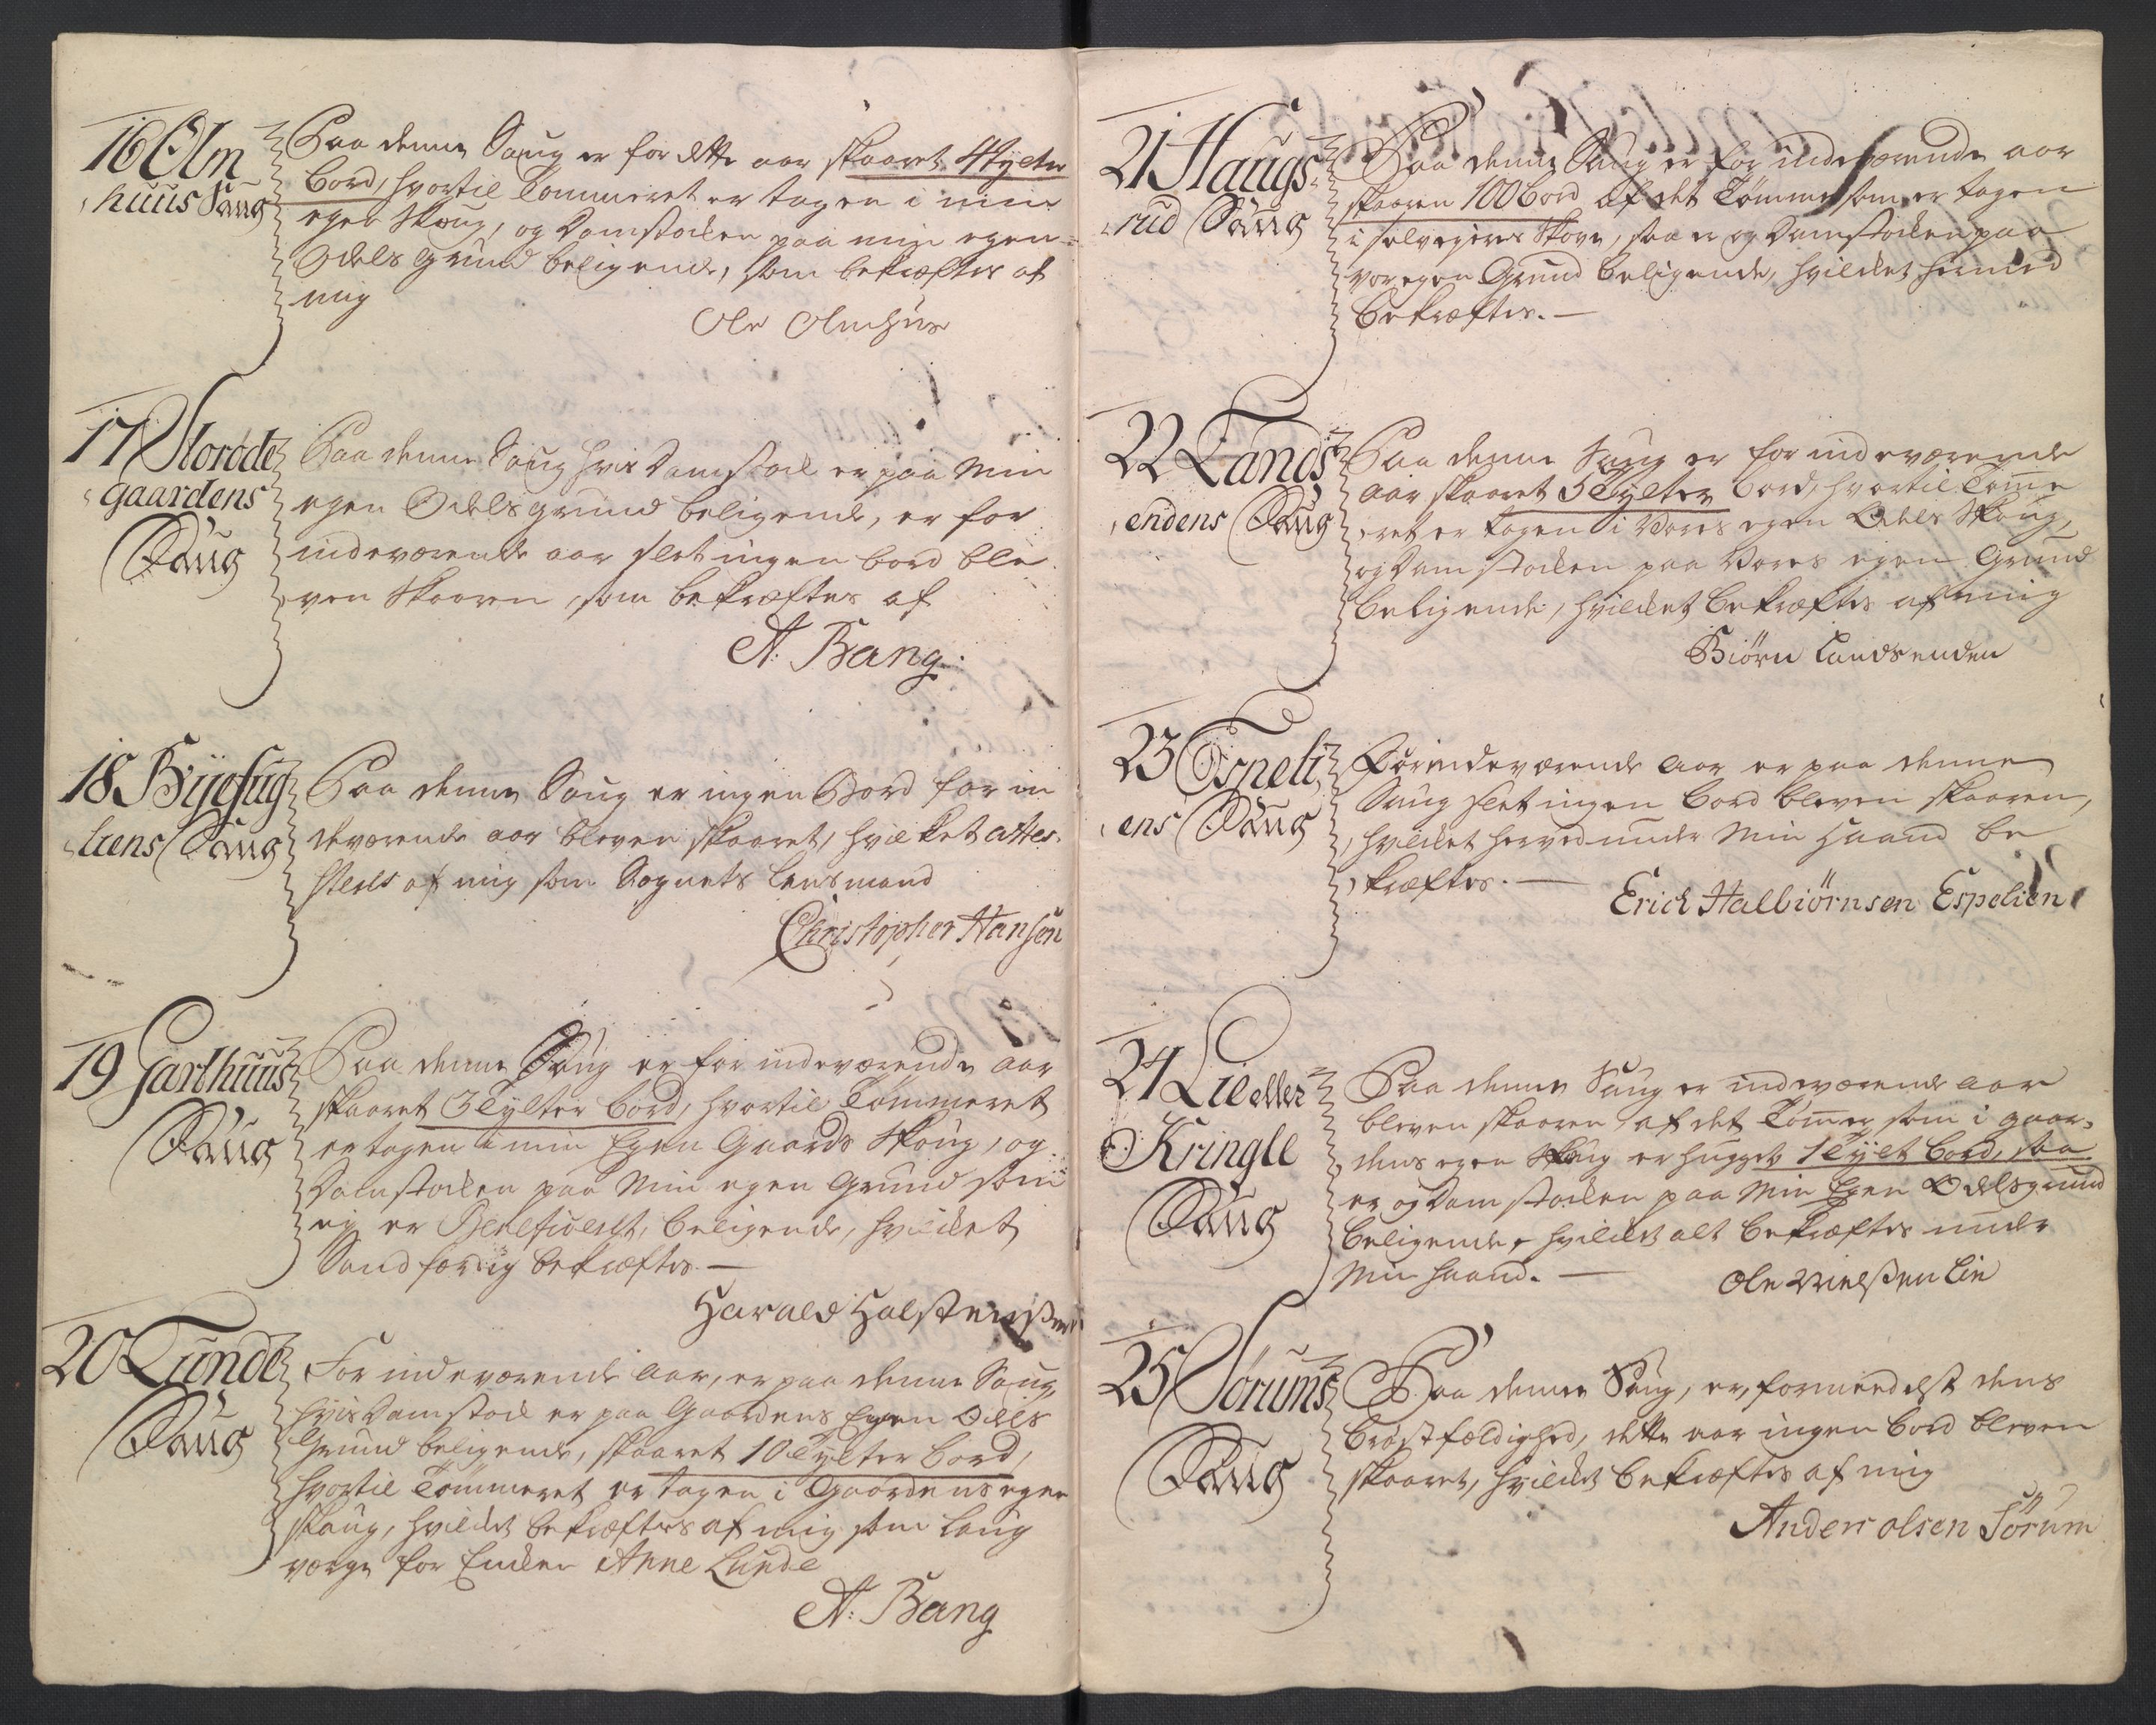 16 Olm
huus Saug
Paa denne Saug er for dette aar skaaret 4 tylter
bord, hvortil Tømmeret er tagen i min
egen Skoug, og Damstocken paa min egen
Odels grund beligende, som bekræftes af
mig
Ole Olmhus
17 Storøde
gaardens
Saug
Paa denne Saug hvis Damstock er paa Min
egen Odels grund beligende, er for
indeværende aar slet ingen bord ble
ven Skaaren, som bekræftes af
A: Bang.
18 Byefug
liens Saug
Paa denne Saug er ingen Bord for in
deværende aar bleven skaaret, hvilket attes¬
steres af mig som Sognets Lensmand
Christopher Hansen
19 Garthuus
Saug
Paa denne Saug er for indeværende aar
skaaret 3 Tylter bord, hvortil Tømmeret
er tagen i min Egen Gaards Skoug, og
Damstocken paa Min egen Grund som
ey er Beneficeret, beligende, hvilcket
Sandfærdig bekræftes. —
Harald Halstenßen
20 Lunde
Saug
For indeværende aar, er paa denne Saug,
hvis Damstock er paa Gaardens Egen Odels
Grund beligende, skaaret 10 Tylter bord,
hvortil Tømmeret er tagen i Gaardens egen
skoug, hvilcket bekræftes af mig som laug
værge for Encken Anne Lunde
A: Bang
21 Haugs¬
rud Saug
Paa denne Saug er for indeværende aar
skaaren 100 bord af det Tømmer som er tagen
i selvejers Skove, saa er og Damstocken paa
vor egen Grund beligende, hvilcket hermed
Bekræftes. —
22 Lands
endens Saug
Paa denne Saug er for indeværende
aar skaaret 5 Tylter bord, hvortil Tømme
ret er tagen i Vores egen Odels Skoug,
og Damstocken paa Vores egen Grund
beligende, hvilcket bekræftes af mig
Biørn Landsenden
23 Espeli
ens Saug
For indeværende aar er paa denne
Saug slet ingen bord bleven skaaren,
hvilcket herved under Min Haand be
kræftes. —
Erich Halbiørnsen Espelien
24 Lie eller
Kringle
Saug
Paa denne Saug er indeværende aar
bleven skaaren af det Tømer som i gaar¬
dens egen Skoug er hugget 1 Tylt bord, saa
er og Damstocken paa Min Egen Odelsgrund
beligende, hvilcket alt bekræftes under
Min haand. —
Ole Nielßen Lie
25 Sørums
Saug
Paa denne Saug, er, formedelst dens
brøstfældighed, dette aar ingen bord bleven
skaaret, hvilcket bekræftes af mig
Anders olsen Sørum